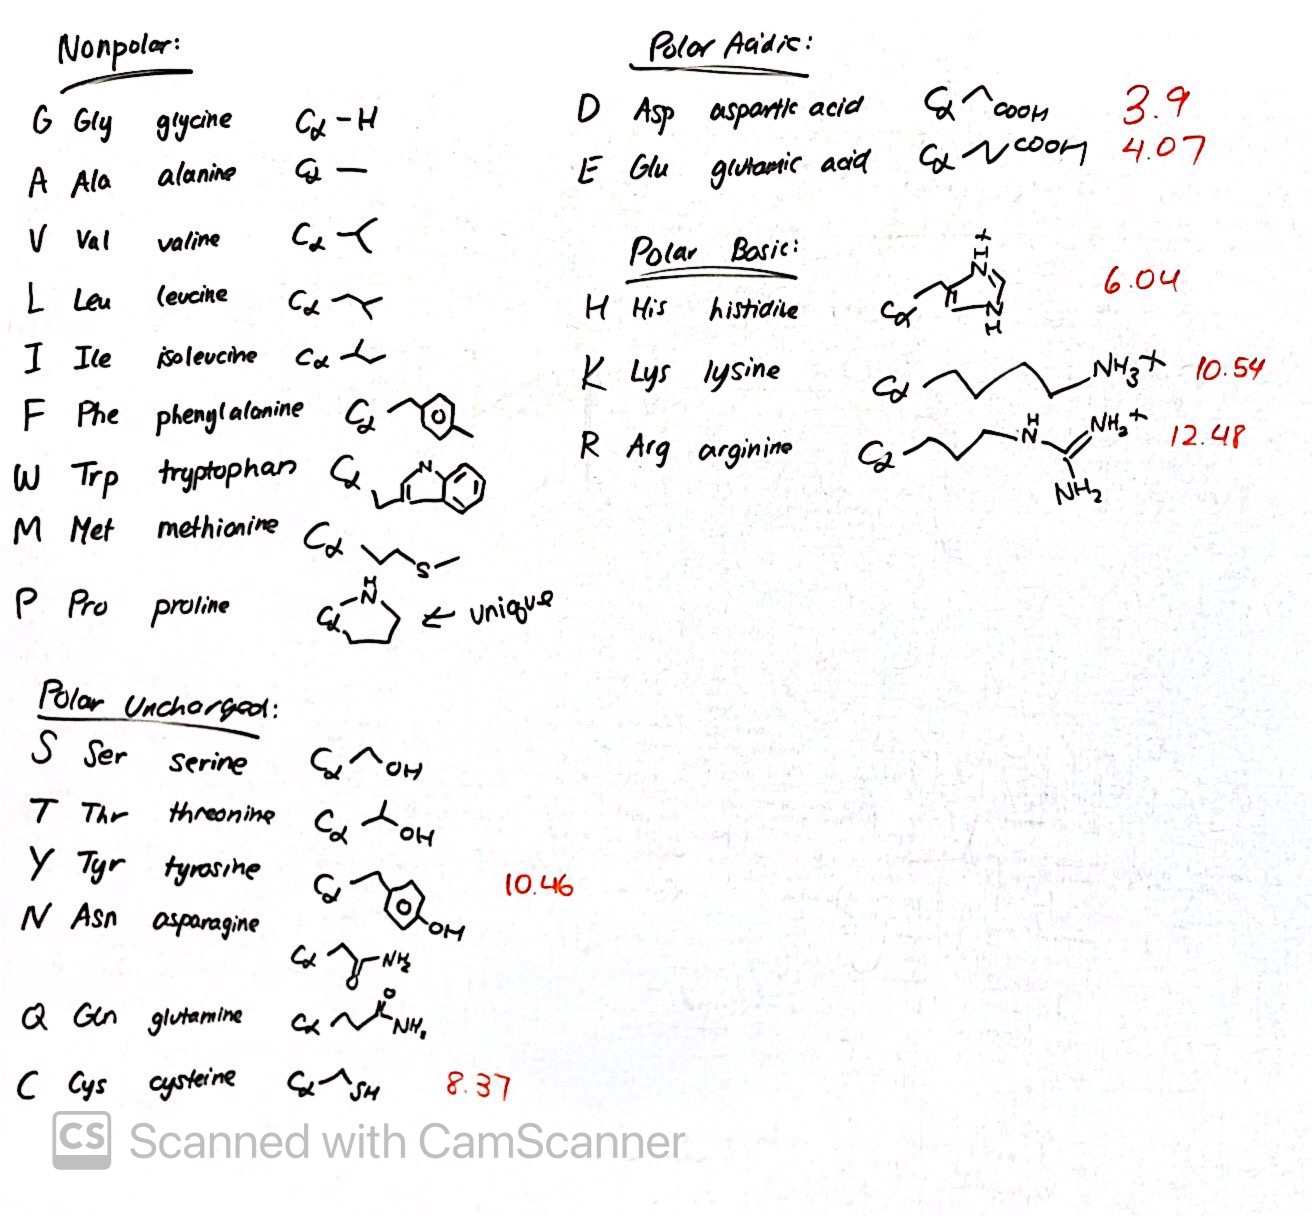 Nonpolar:
G Gly glycine Cα -H
A Ala alanine Cα
V Val valine Cα
L Leu leucine Cα
I Ile isoleucine Cα
F Phe phenylalanine Cα
W Trp tryptophan Cα N
M Met methionine Cα S
P Pro proline Cα H N ← unique
Polar Uncharged:
S Ser serine Cα OH
T Thr threonine Cα OH
Y Tyr tyrosine Cα OH 10.46
N Asn asparagine Cα O NH2
Q Gln glutamine Cα O NH2
C Cys cysteine Cα SH 8.37
Polar Acidic:
D Asp aspartic acid Cα COOH 3.9
E Glu glutamic acid Cα COOH 4.07
Polar Basic:
H His histidine Cα H+ N N H 6.04
K Lys lysine Cα NH3+ 10.54
R Arg arginine Cα H N NH2+ NH2 12.48
CS Scanned with CamScanner